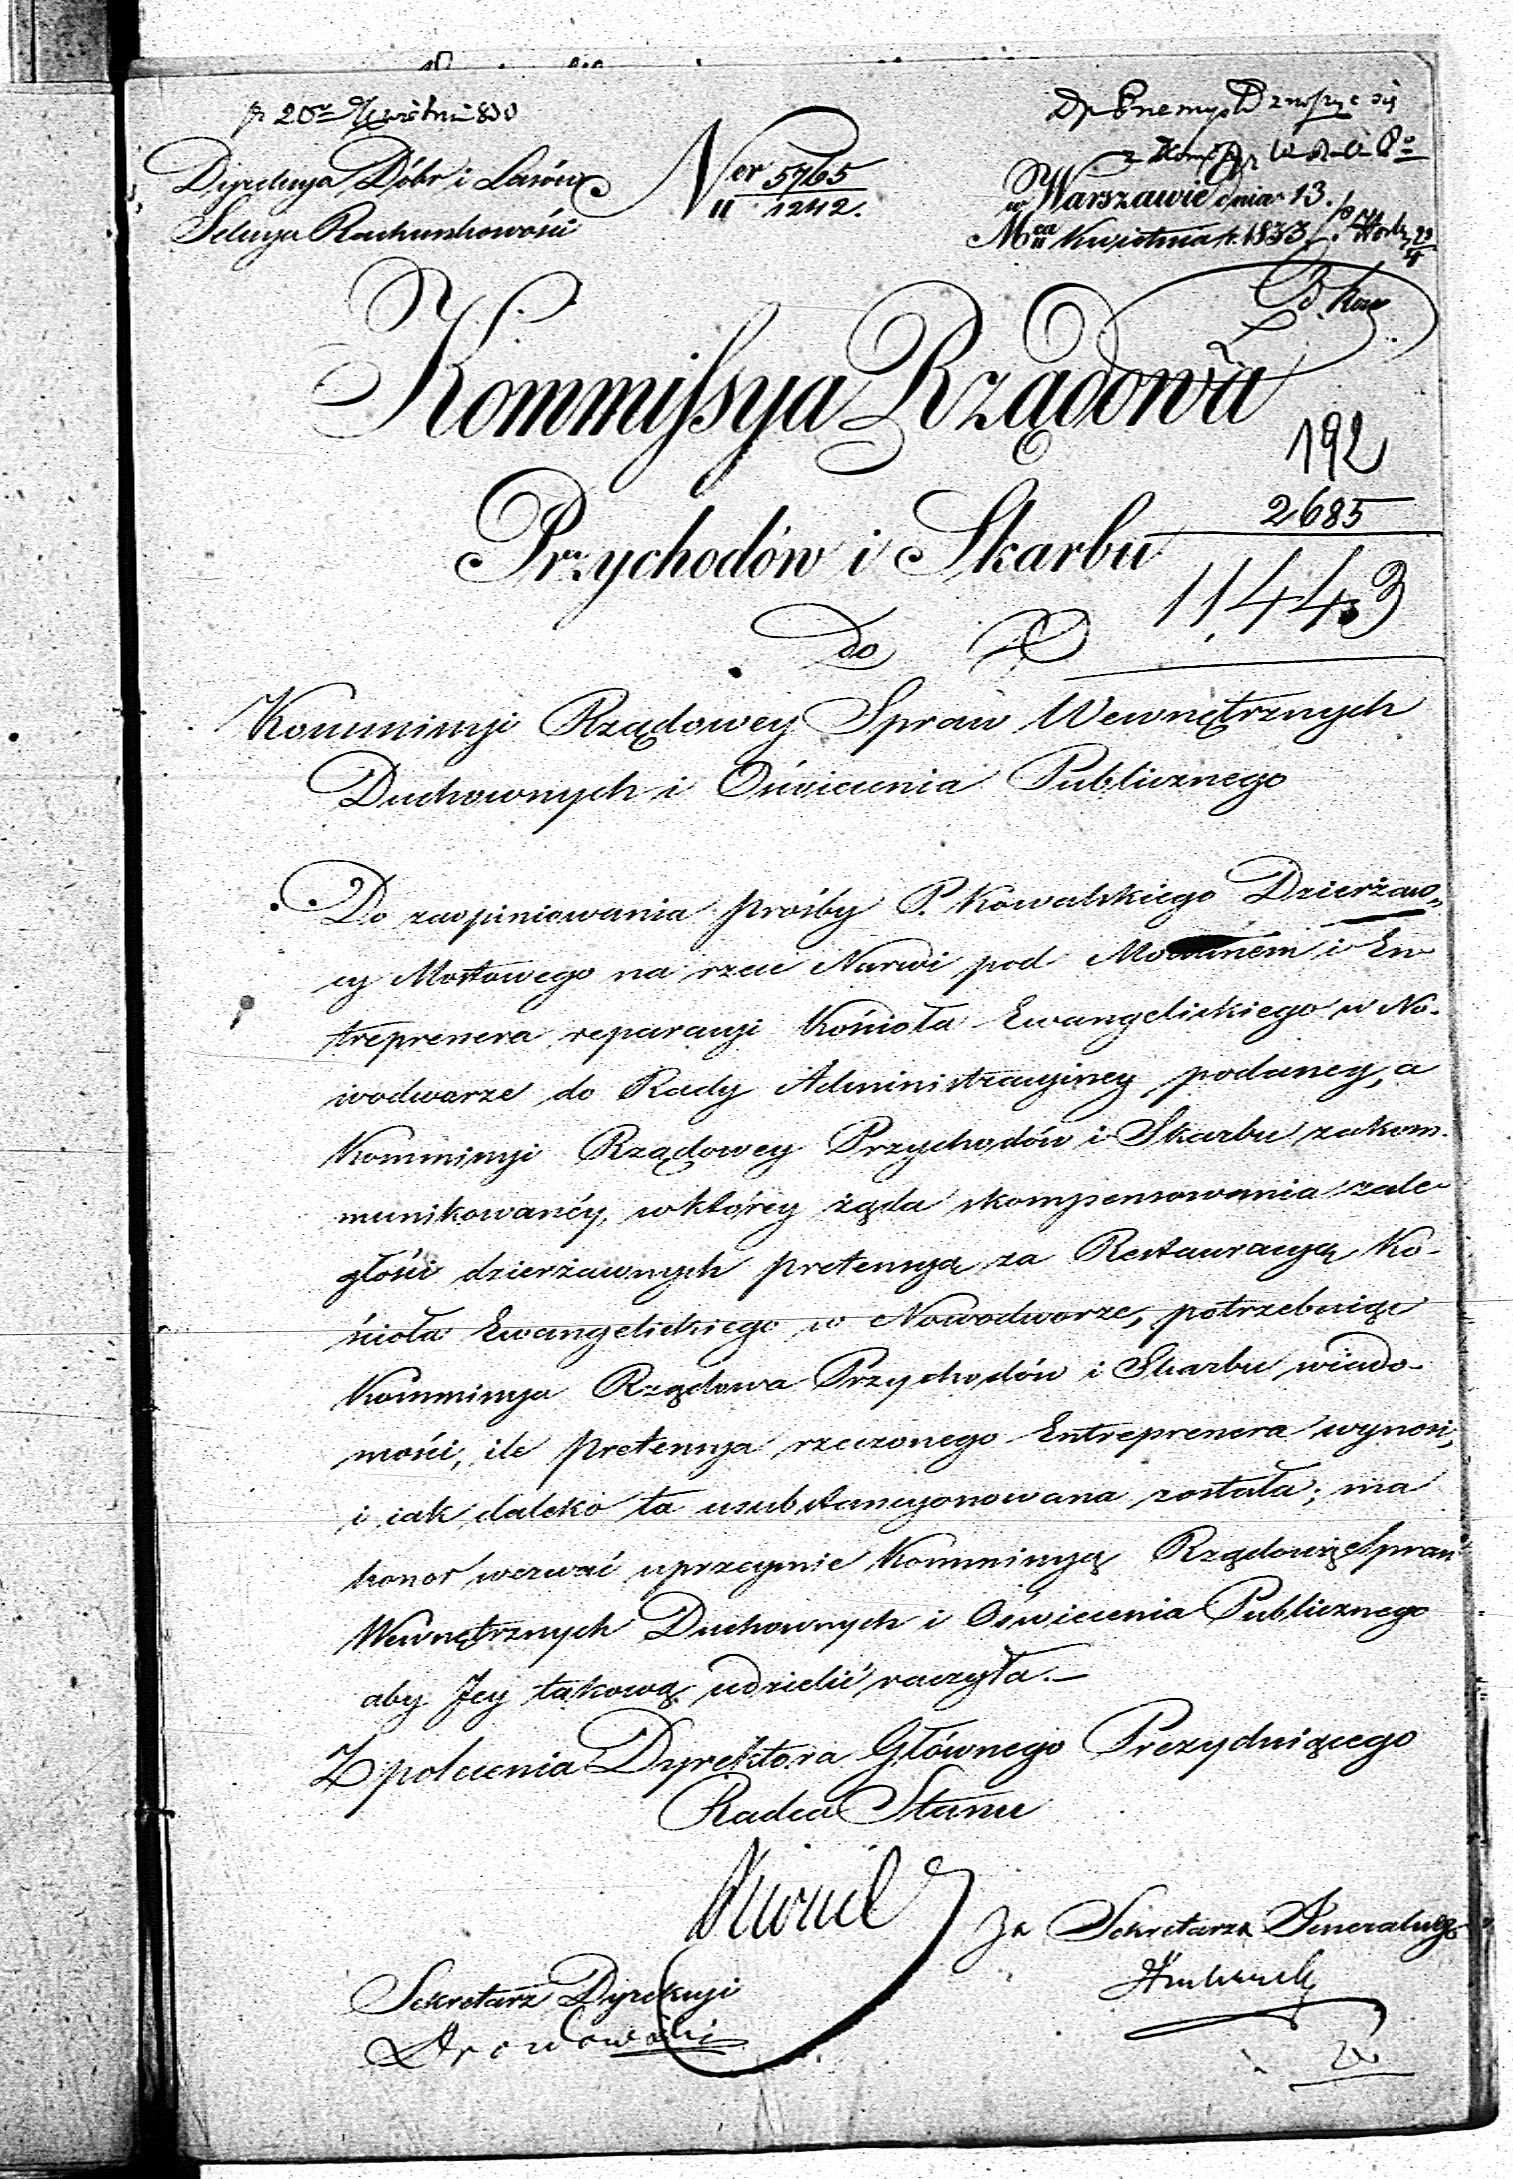 Dyrekcya Dóbr i Lasów
Sekcya Rachunkowości
Ner 5765
1242.
w Warszawie dnia 13.
Mca Kwietnia r. 1833
Kommissya Rządowa
192
2685
Przychodów i Skarbu
11443
Do
Kommissyi Rządowey Spraw Wewnętrznych
Duchownych i Oświecenia Publicznego
Do zaopiniowania prośby P. Kowalskiego Dzierżaw-
cy Mostowego na rzece Narwi pod Modlinem i En-
treprenera reparacyi Kościoła Ewangelickiego w No-
wodworze do Rady Administracyiney podaney, a
Kommissyi Rządowey Przychodów i Skarbu zakom-
munikowanéy, w któréy żąda skompensowania zale-
głości dzierżawnych pretensyą za Restauracyą Ko-
ścioła Ewangelickiego w Nowodworze, potrzebuiąc
Kommissya Rządowa Przychodów i Skarbu wiado-
mości, ile pretensya rzeczonego Entreprenera wynosi,
i iak daleko ta usubstancyonowana została; ma
honor wezwać uprzeymie Kommissyą Rządową Spraw
Wewnętrznych Duchownych i Oświecenia Publicznego
aby Jey takową udzielić raczyła.—
Z polecenia Dyrektora Głównego Prezyduiącego
Radca Stanu
Za Sekretarza Jeneralnego
Sekretarz Dyrekcyi